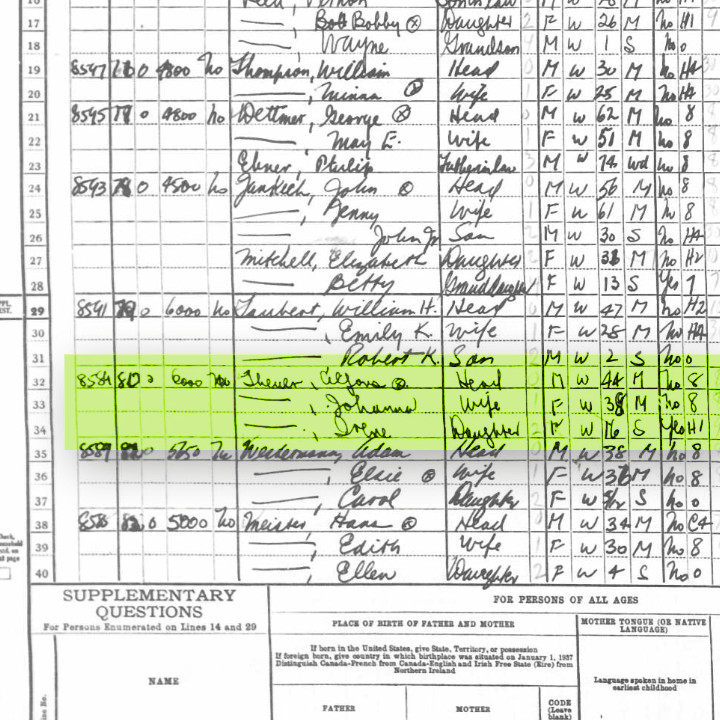 17 Bobby Daughter F W 26 M no H1
18 Wayne Grandson M W 1 S no 0
19 8547 0 4800 no Thompson, William Head M W 30 M no H4
20 Minna Wife F W 25 M no H4
21 8545 0 4800 no Dettmer, George Head M W 62 M no 8
22 May E. Wife F W 51 M no 8
23 Ebner, Philip Fatherinlaw M W 74 wd no 8
24 8543 0 4500 no John Head M W 56 M no 8
25 Jenny Wife F W 61 M no 8
26 John Jr Son M W 30 S no H4
27 Mitchell, Elizabeth Daughter F W M no H2
28 Betty Granddaughter F W 13 S Yes 7
29 8541 0 6000 no Taubert, William H. Head M W 47 M no H2
30 Emily K. Wife F W 28 M no H4
31 Robert K. Son M W 2 S no 0
32 80 6000 no Theuer, Head M W 44 M no 8
33 Johanna Wife F W 38 M no 8
34 Irene Daughter F W 16 S Yes H1
35 no Adam Head M W 38 M no 8
36 Elsie Wife F W M no 8
37 Carol Daughter F W S no 0
38 0 5000 no Meister, Hans Head M W 34 M no C4
39 Edith Wife F W 30 M no 8
40 Ellen Daughter F W 4 S no 0
SUPPLEMENTARY QUESTIONS
For Persons Enumerated on Lines 14 and 29
NAME
FOR PERSONS OF ALL AGES
PLACE OF BIRTH OF FATHER AND MOTHER
If born in the United States, give State, Territory, or possession
If foreign born, give country in which birthplace was situated on January 1, 1937
Distinguish Canada-French from Canada-English and Irish Free State (Eire) from Northern Ireland
FATHER
MOTHER
CODE (Leave blank)
MOTHER TONGUE (OR NATIVE LANGUAGE)
Language spoken in home in earliest childhood